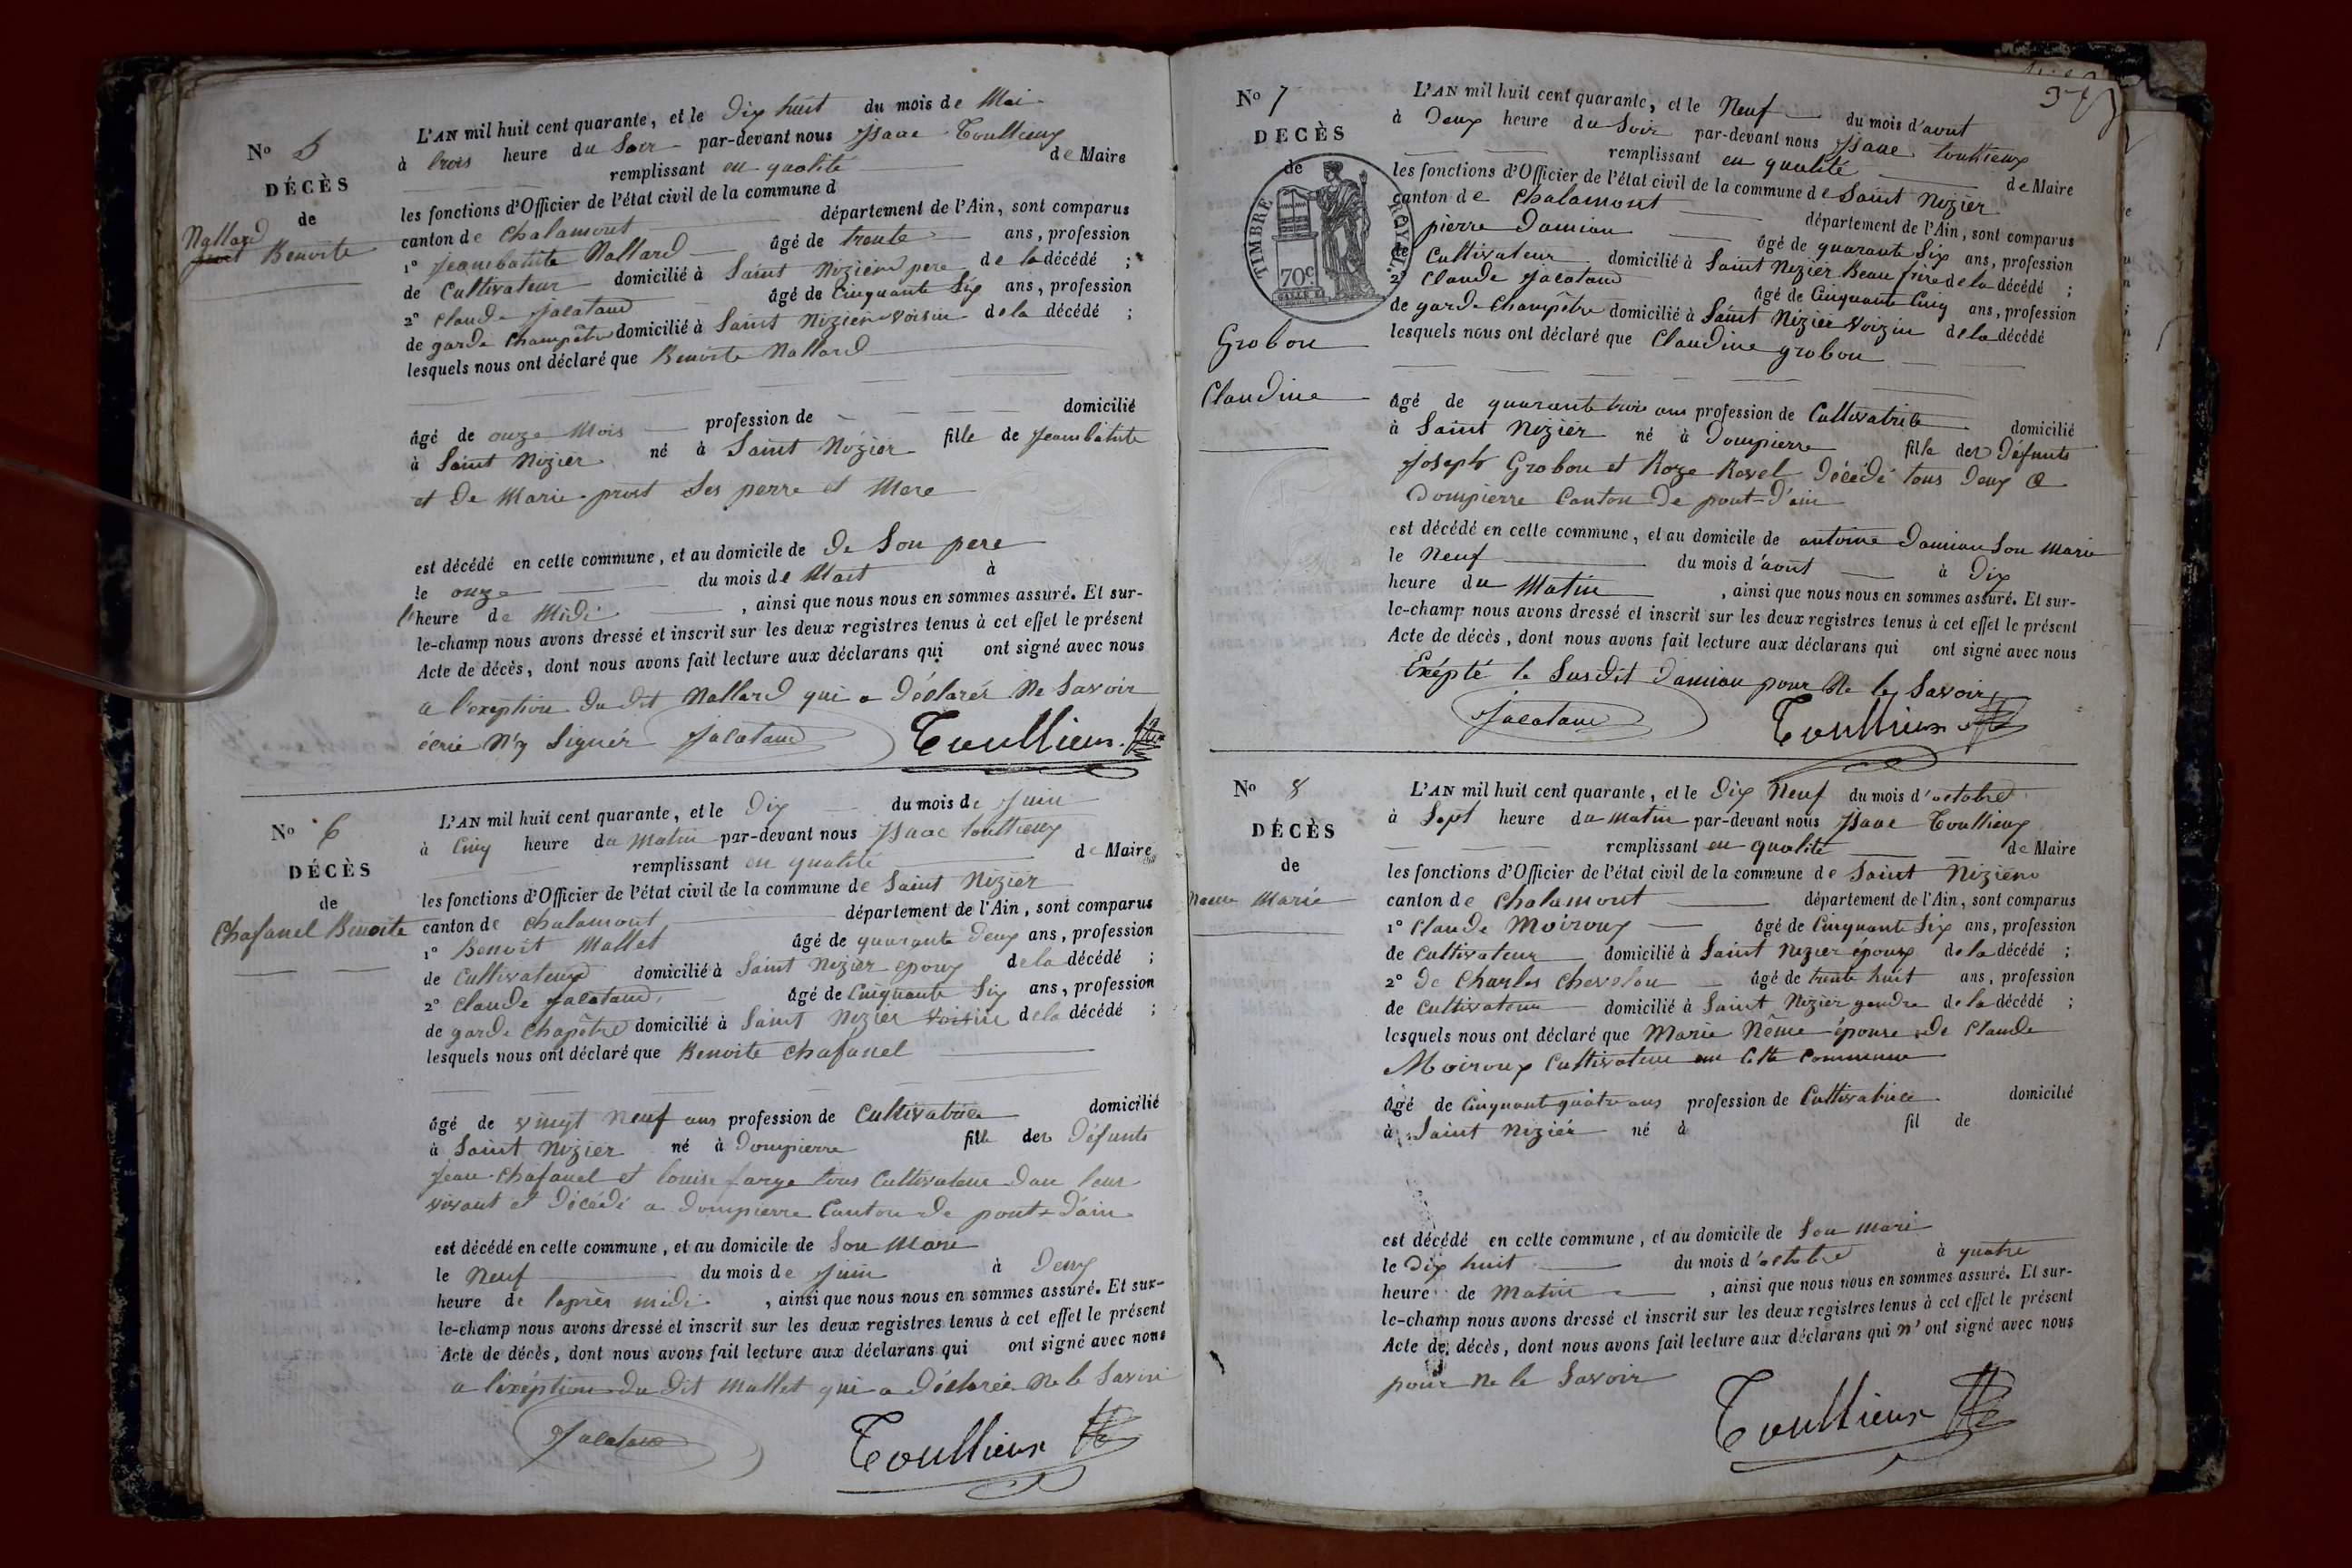 No 5
DÉCÈS
de
Nallard
Benoite
L'AN mil huit cent quarante, et le Dix huit du mois de Mai
à trois heure du Soir par-devant nous Isaac Toullieux
remplissant en qualité de Maire
les fonctions d'Officier de l'état civil de la commune d
canton de Chalamont département de l'Ain, sont comparus
1° Jeanbatiste Nallard âgé de trente ans, profession
de Cultivateur domicilié à Saint Nizier pere de la décédé ;
2° Claude Jacataud âgé de Cinquante Six ans, profession
de garde Champêtre domicilié à Saint Nizier voisin de la décédé ;
lesquels nous ont déclaré que Benoite Nallard
âgé de onze Mois profession de domicilié
à Saint Nizier né à Saint Nizier fille de Jeanbatiste
et de Marie prost Ses perre et Mere
est décédé en cette commune, et au domicile de De Son pere
le onze du mois de à
l'heure de Midi , ainsi que nous nous en sommes assuré. Et sur-
le-champ nous avons dressé et inscrit sur les deux registres tenus à cet effet le présent
Acte de décès, dont nous avons fait lecture aux déclarans qui ont signé avec nous
a l'exeption du dit Nallard qui a Déclarér Ne Savoir
écrie N'y Signér Jacataud Toullieux
No 6
DÉCÈS
de
Chafanel Benoite
L'AN mil huit cent quarante, et le Dix du mois de Juin
à Cinq heure du Matin par-devant nous Isaac Toullieux
remplissant en qualité de Maire
les fonctions d'Officier de l'état civil de la commune de Saint Nizier
canton de Chalamont département de l'Ain, sont comparus
1° Benoit Mallet âgé de quarante Deux ans, profession
de Cultivateur domicilié à Saint Nizier epoux de la décédé ;
2° Claude Jacataud âgé de Cinquante Six ans, profession
de garde Chapêtre domicilié à Saint Nizier Voisin de la décédé ;
lesquels nous ont déclaré que Benoite Chafanel
âgé de vingt Neuf ans profession de Cultivatrice domicilié
à Saint Nizier né à Dompierre fille des Défunts
Jean Chafanel et louise farge tous Cultivateur Dan leur
vivant et Décédé a Dompierre Canton de pont-D'ain
est décédé en cette commune, et au domicile de Son Mari
le Neuf du mois de Juin à Deux
heure de l'après midi , ainsi que nous nous en sommes assuré. Et sur-
le-champ nous avons dressé et inscrit sur les deux registres tenus à cet effet le présent
Acte de décès, dont nous avons fait lecture aux déclarans qui ont signé avec nous
a l'exéption du dit Mallet qui a Déclarée Ne le Savoir
Jacataud Toullieux
No 7
DECÈS
de
TIMBRE ROYAL
70c
Grobon
Claudine
L'AN mil huit cent quarante, et le Neuf du mois d'aout
à Deux heure du Soir par-devant nous Isaac Toullieux
remplissant en qualité de Maire
les fonctions d'Officier de l'état civil de la commune de Saint Nizier
canton de Chalamont département de l'Ain, sont comparus
pierre Damian âgé de quarante Six ans, profession
de Cultivateur domicilié à Saint Nizier Beau frère de la décédé ;
2° Claude Jacataud âgé de Cinquante Cinq ans, profession
de garde Champêtre domicilié à Saint Nizier Voizin de la décédé
lesquels nous ont déclaré que Claudine grobon
âgé de quarante trois ans profession de Cultivatrice domicilié
à Saint Nizier né à Dompierre fille des Défunts
Joseph Grobon et Roze Revel Décédé tous Deux a
Dompierre Canton De pont-D'ain
est décédé en cette commune, et au domicile de antoine Damian Son Marie
le Neuf du mois d'aout à Dix
heure du Matin , ainsi que nous nous en sommes assuré. Et sur-
le-champ nous avons dressé et inscrit sur les deux registres tenus à cet effet le présent
Acte de décès, dont nous avons fait lecture aux déclarans qui ont signé avec nous
Exépté le Susdit Damian pour Ne le Savoir
Jacataud Toullieux
No 8
DÉCÈS
de
Neme Marie
L'AN mil huit cent quarante, et le Dix Neuf du mois d'octobre
à Sept heure du matin par-devant nous Isaac Toullieux
remplissant en qualité de Maire
les fonctions d'Officier de l'état civil de la commune de Saint Nizier
canton de Chalamont département de l'Ain, sont comparus
1° Claude Moiroux âgé de Cinquante Six ans, profession
de Cultivateur domicilié à Saint Nizier époux de la décédé ;
2° De Charles Chevelon âgé de trente huit ans, profession
de Cultivateur domicilié à Saint Nizier gendre de la décédé ;
lesquels nous ont déclaré que Marie Nême épouse De Claude
Moiroux Cultivateur en Cette Commune
âgé de Cinquant quatre ans profession de Cultivatrice domicilié
à Saint Nizier né à fil de
est décédé en cette commune, et au domicile de Son Mari
le Dix huit du mois d'octobre à quatre
heure de Matin , ainsi que nous nous en sommes assuré. Et sur-
le-champ nous avons dressé et inscrit sur les deux registres tenus à cet effet le présent
Acte de décès, dont nous avons fait lecture aux déclarans qui n'ont signé avec nous
pour Ne le Savoir
Toullieux